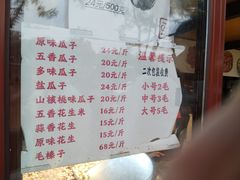 24元/500克
原味瓜子 24元/斤
五香瓜子 20元/斤
多味瓜子 20元/斤
盐瓜子 24元/斤
山核桃味瓜子 20元/斤
五香花生米 16元/斤
蒜香花生 15元/斤
原味花生 15元/斤
毛榛子 68元/斤
温馨提示
二次包装收费
小号2毛
中号3毛
大号5毛